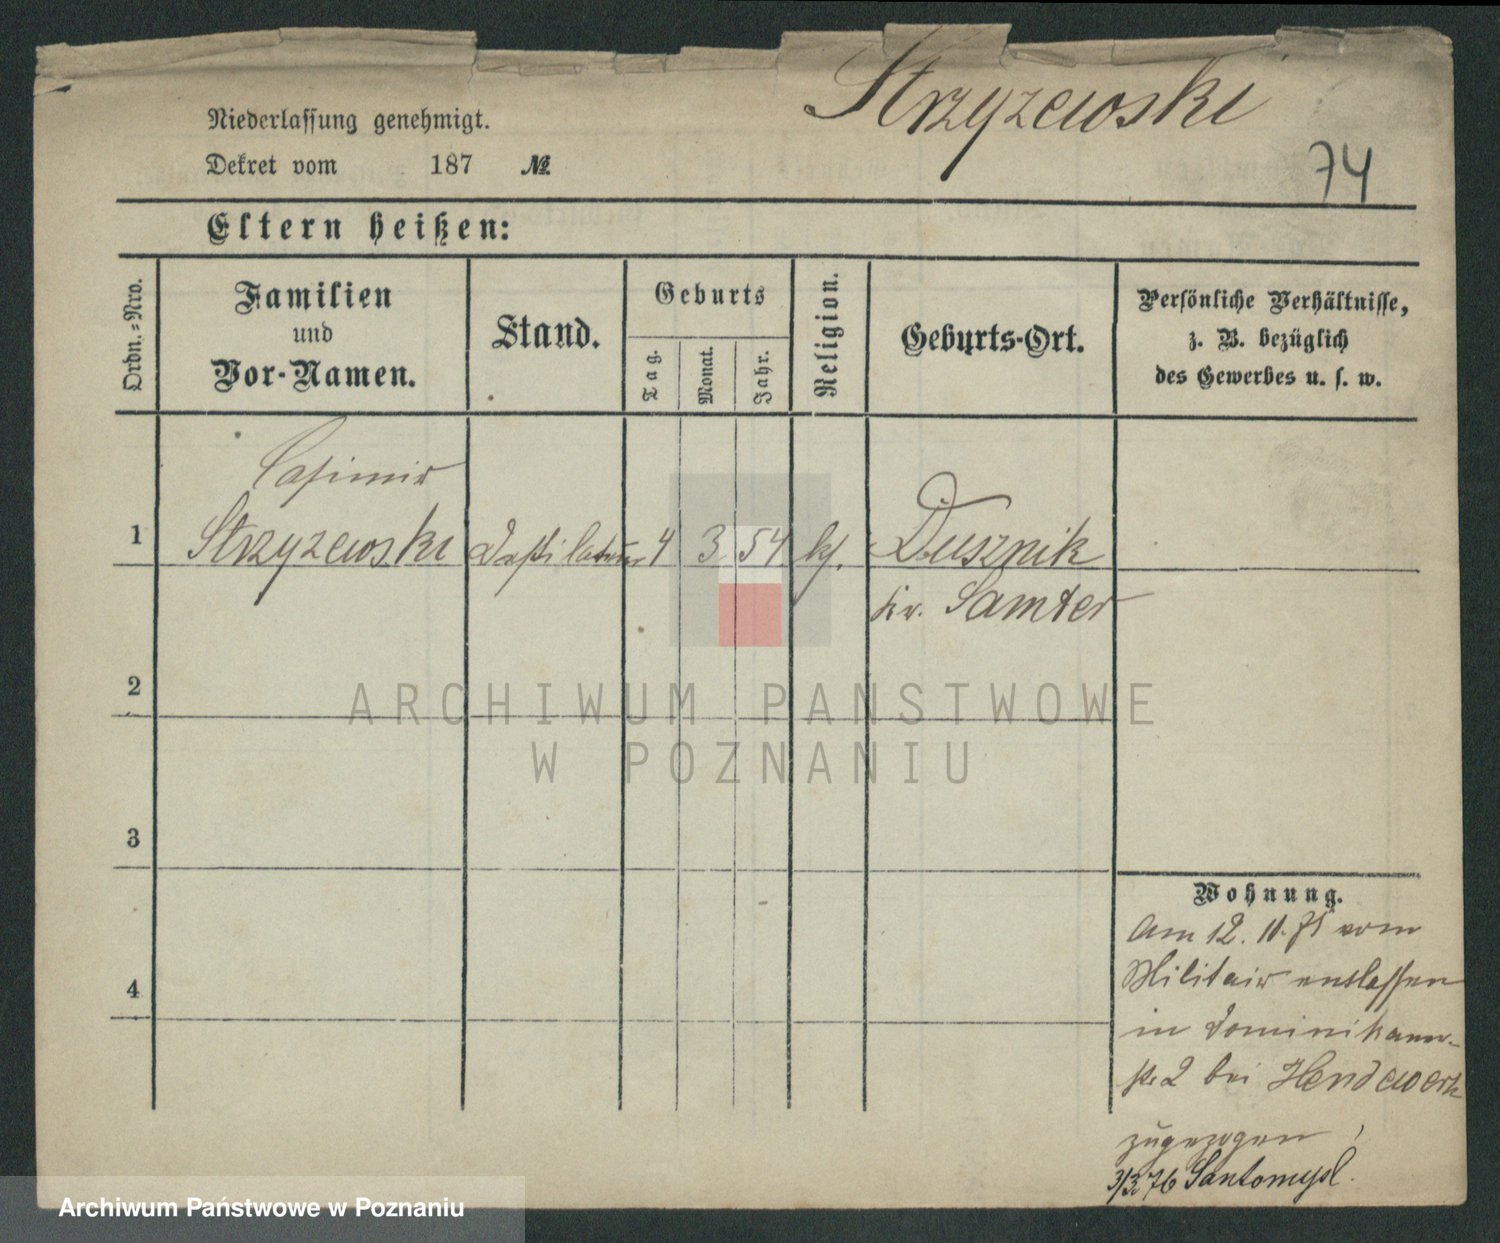 Strzyzewski
Niederlassung genehmigt.
Dekret vom 187 №
74
Eltern heißen:
Ordn.=Nro.
Familien
und
Vor-Namen.
Stand.
Geburts
Tag.
Monat.
Jahr.
Religion.
Geburts-Ort.
Persönliche Verhältnisse,
z. B. bezüglich
des Gewerbes u. s. w.
Casimir
1 Strzyzewski Destilateur 4 3 54 kf. Dusznik
Kr. Samter
2
ARCHIWUM PAŃSTWOWE
W POZNANIU
3
Wohnung.
Am 12. 11. 75 vom
Militair entlassen
4
in Dominikaner-
str 2 bei Hendewerk
zugezogen
3/3 76 Santomysl.
Archiwum Państwowe w Poznaniu